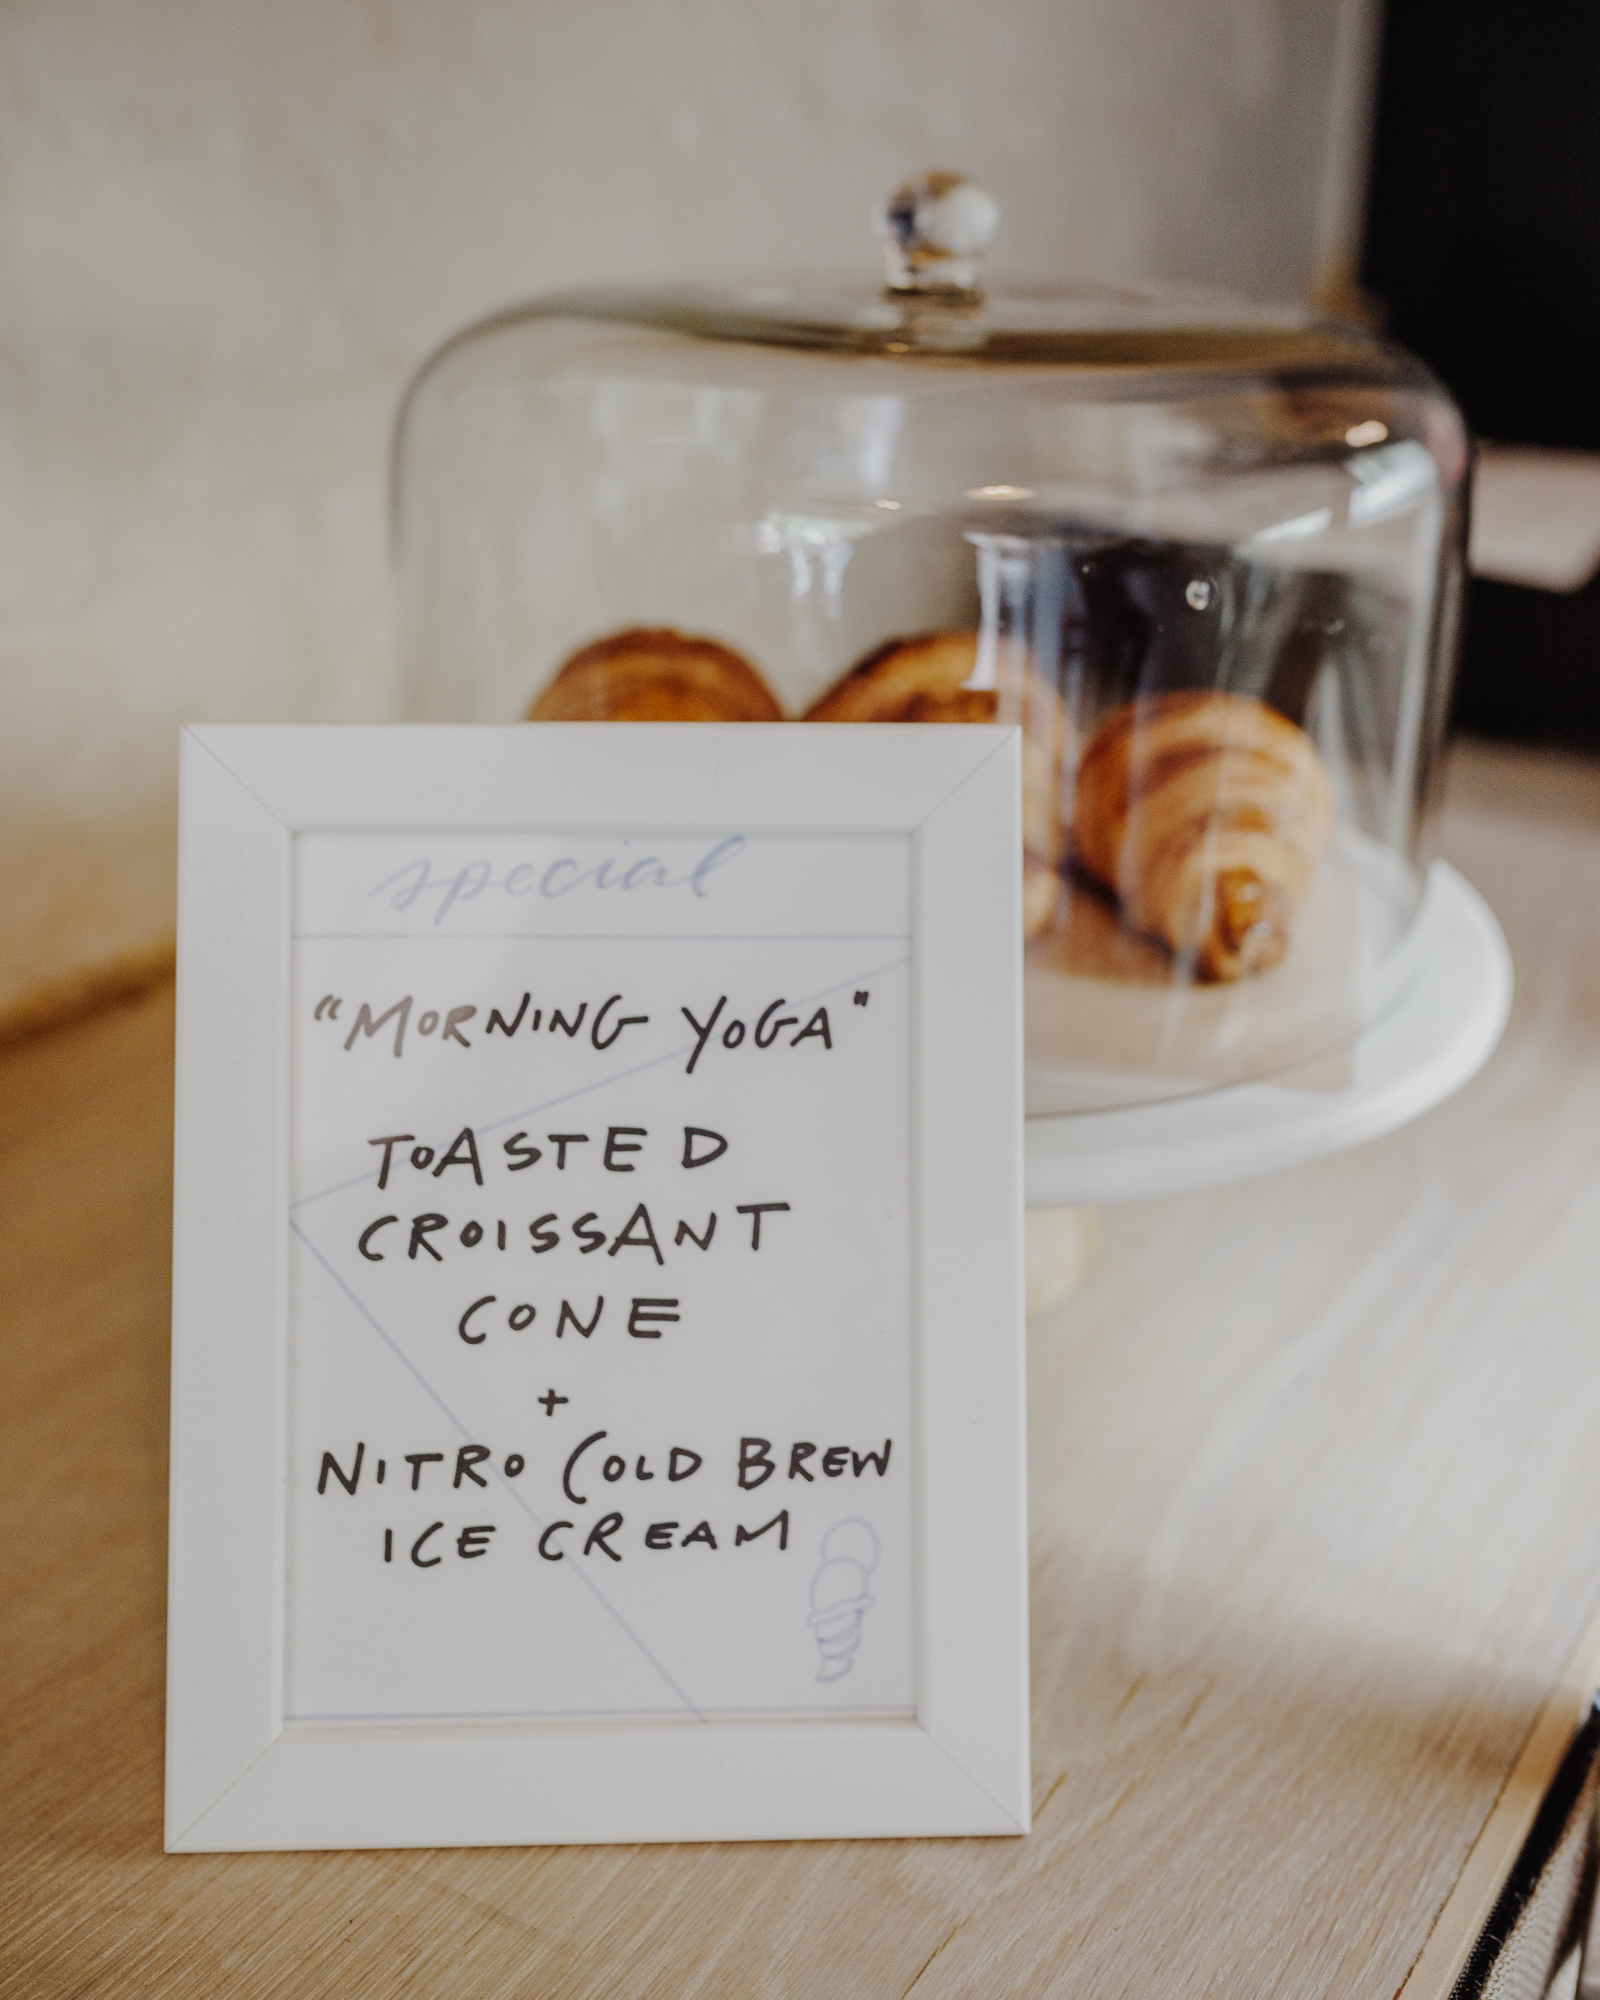 special
“MORNING YOGA"
TOASTED
CROISSANT
CONE
+
NITRO COLD BREW
ICE CREAM